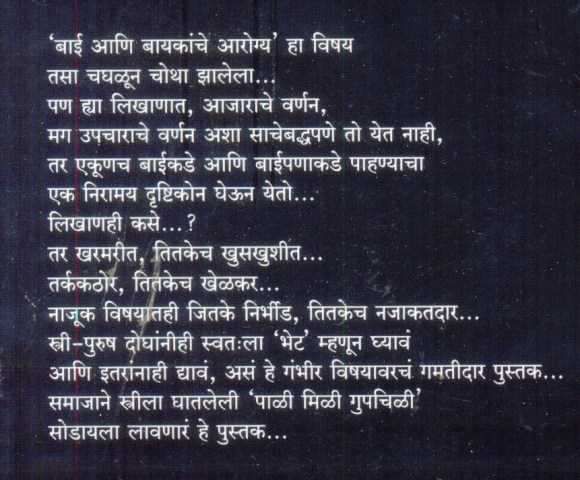 ‘बाई आणि बायकांचे आरोग्य’ हा विषय
तसा चघळून चोथा झालेला...
पण ह्या लिखाणात, आजाराचे वर्णन,
मग उपचाराचे वर्णन अशा साचेबद्धपणे तो येत नाही,
तर एकूणच बाईकडे आणि बाईपणाकडे पाहण्याचा
एक निरामय दृष्टिकोन घेऊन येतो...
लिखाणही कसे...?
तर खरमरीत, तितकेच खुसखुशीत...
तर्ककठोर, तितकेच खेळकर...
नाजूक विषयातही जितके निर्भीड, तितकेच नजाकतदार...
स्त्री-पुरुष दोघांनीही स्वतःला ‘भेट’ म्हणून घ्यावं
आणि इतरांनाही द्यावं, असं हे गंभीर विषयावरचं गमतीदार पुस्तक...
समाजाने स्त्रीला घातलेली ‘पाळी मिळी गुपचिळी’
सोडायला लावणारं हे पुस्तक...